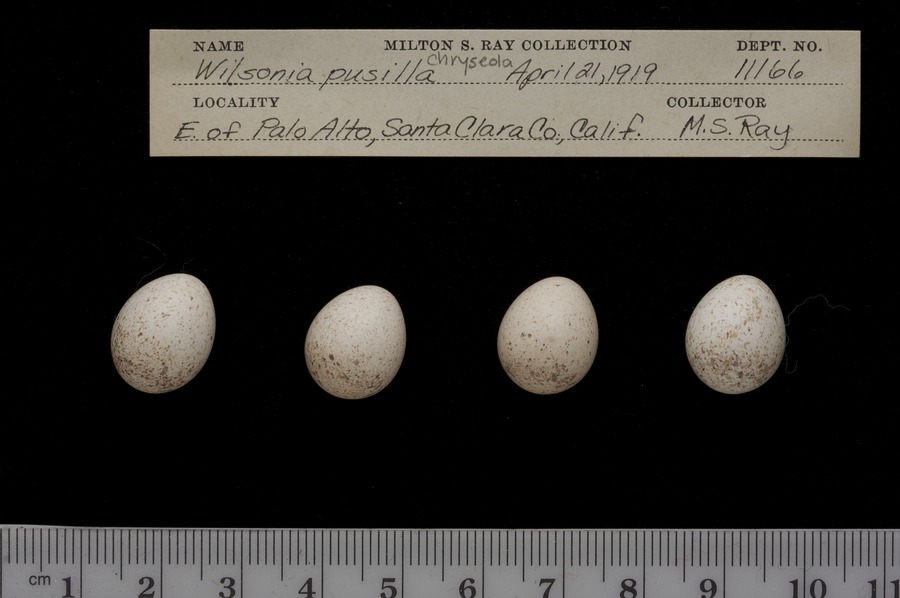 NAME MILTON S. RAY COLLECTION DEPT. NO.
Wilsonia pusilla chryseola April 21, 1919 11166
LOCALITY COLLECTOR
E. of Palo Alto, Santa Clara Co., Calif. M.S. Ray
cm 1 2 3 4 5 6 7 8 9 10 11